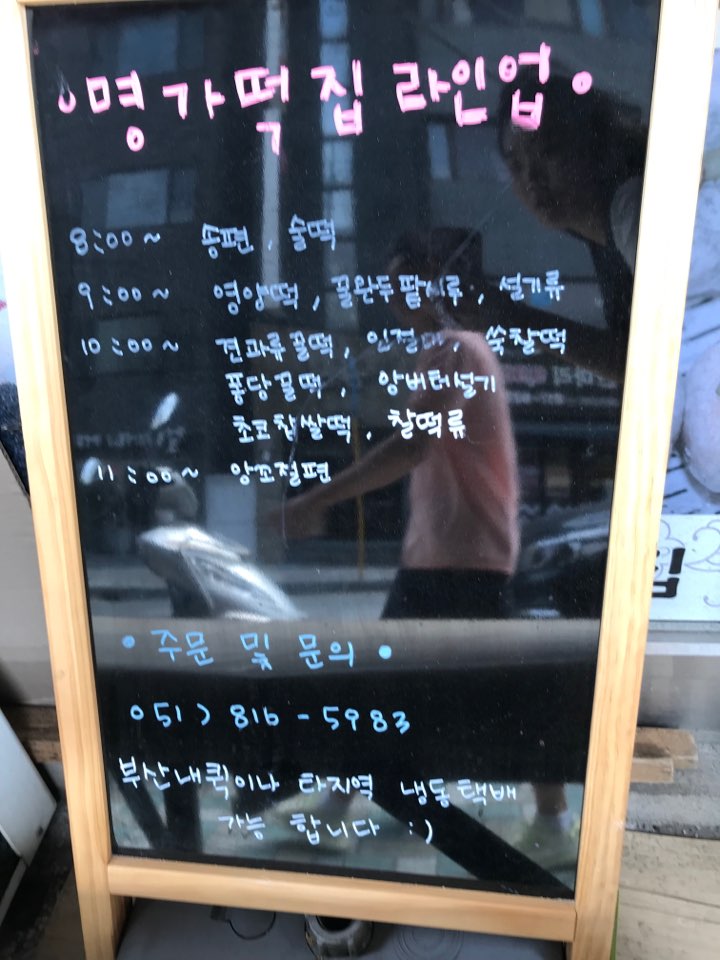 명가떡집 라인업
8:00~ 송편, 술떡
9:00~ 영양떡, 꿀완두팥시루, 설기류
10:00~ 견과류꿀떡, 인절미, 쑥찰떡
퐁당꿀떡, 앙버터설기
초코찹쌀떡, 찰떡류
11:00~ 앙꼬절편
• 주문 및 문의 •
051) 816-5983
부산내퀵이나 타지역 냉동택배
가능 합니다 :)